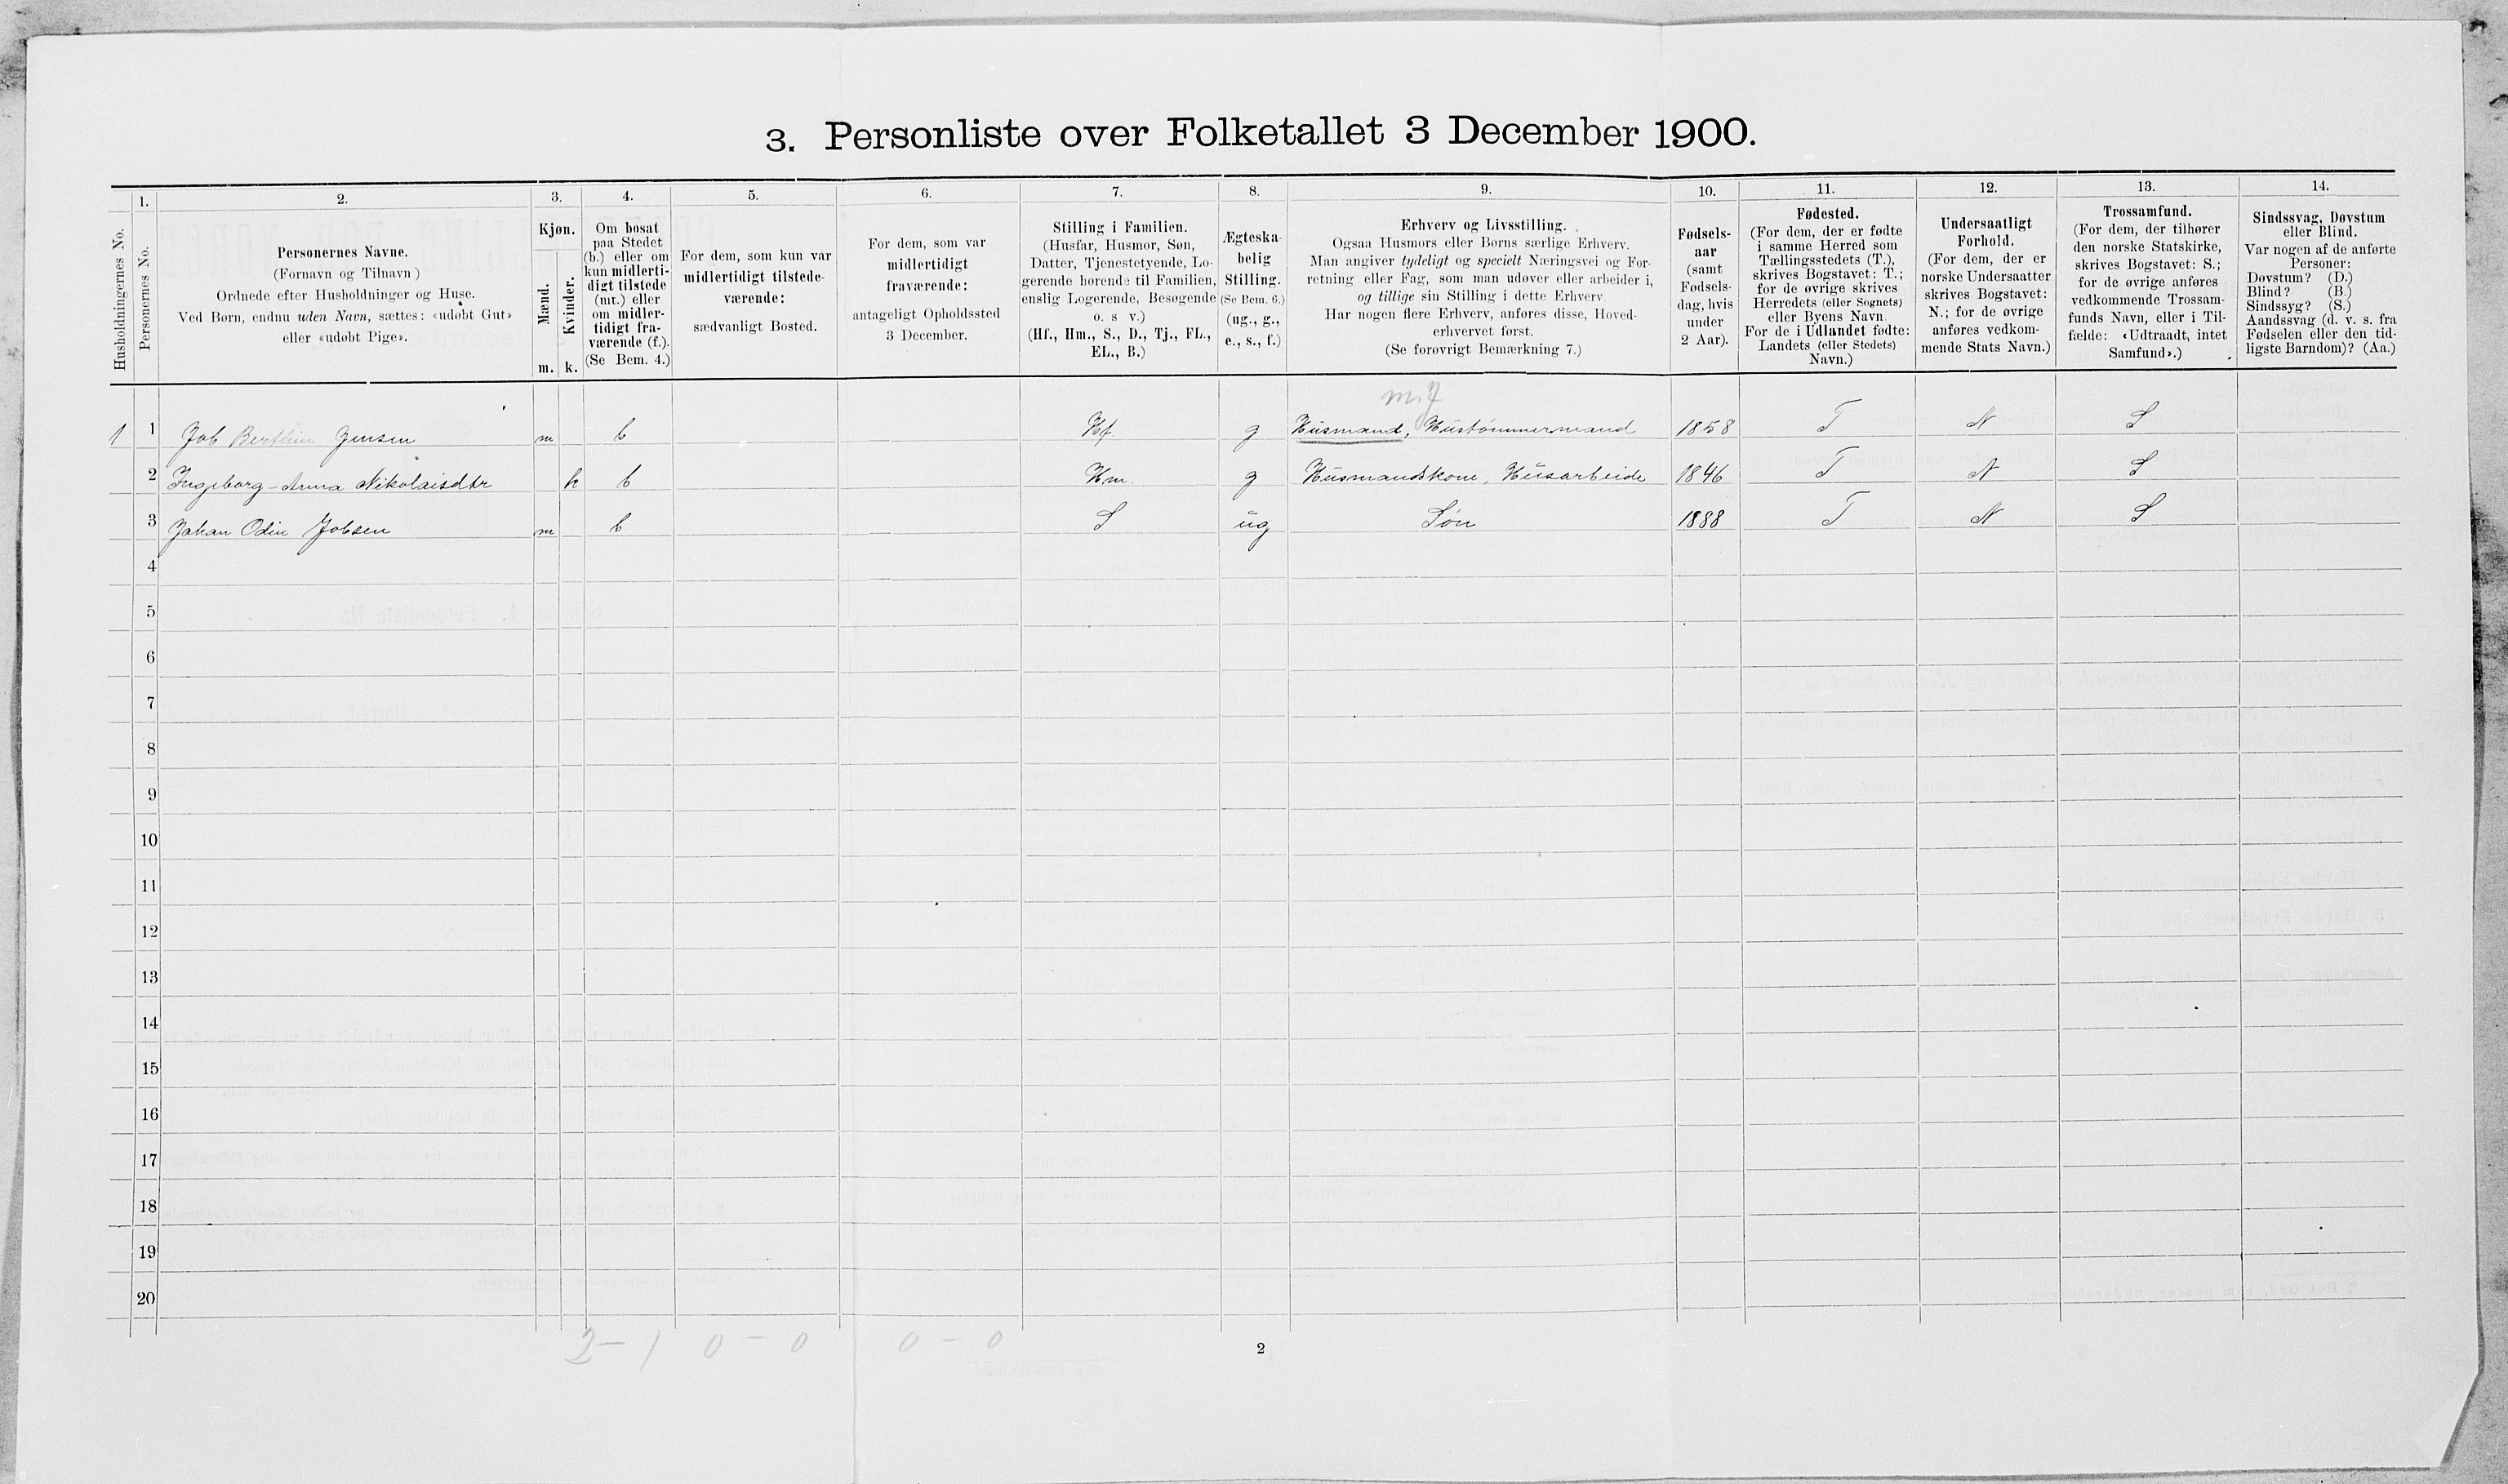 3. Personliste over Folketallet 3 December 1900.
1. 2. 3. 4. 5. 6. 7. 8. 9. 10. 11. 12. 13. 14.
Husholdningernes No.
Personernes No.
Personernes Navne.
(Fornavn og Tilnavn)
Ordnede efter Husholdninger og Huse.
Ved Børn, endnu uden Navn, sættes: «udøbt Gut»
eller «udøbt Pige».
Kjøn.
Mænd.
Kvinder.
m. k.
Om bosat
paa Stedet
(b.) eller om
kun midlerti-
digt tilstede
(mt.) eller
om midler-
tidigt fra-
værende (f.).
(Se Bem. 4.)
For dem, som kun var
midlertidigt tilstede-
værende:
sædvanligt Bosted.
For dem, som var
midlertidigt
fraværende:
antageligt Opholdssted
3 December.
Stilling i Familien.
(Husfar, Husmor, Søn,
Datter, Tjenestetyende, Lo-
gerende hørende til Familien,
enslig Logerende, Besøgende
o. s v.)
(Hf., Hm., S., D., Tj., FL.,
EL., B.)
Ægteska-
belig
Stilling.
(Se Bem. 6.)
(ug., g.,
e., s., f.)
Erhverv og Livsstilling.
Ogsaa Husmors eller Børns særlige Erhverv.
Man angiver tydeligt og specielt Næringsvei og For-
retning eller Fag, som man udøver eller arbeider i,
og tillige sin Stilling i dette Erhverv.
Har nogen flere Erhverv, anføres disse, Hoved-
erhvervet først.
(Se forøvrigt Bemærkning 7.)
Fødsels-
aar
(samt
Fødsels-
dag, hvis
under
2 Aar).
Fødested.
(For dem, der er fødte
i samme Herred som
Tællingsstedets (T.),
skrives Bogstavet: T.;
for de øvrige skrives
Herredets (eller Sognets)
eller Byens Navn.
For de i Udlandet fødte:
Landets (eller Stedets)
Navn.)
Undersaatligt
Forhold.
(For dem, der er
norske Undersaatter
skrives Bogstavet:
N.; for de øvrige
anføres vedkom-
mende Stats Navn.)
Trossamfund.
(For dem, der tilhører
den norske Statskirke,
skrives Bogstavet: S.;
for de øvrige anføres
vedkommende Trossam-
funds Navn, eller i Til-
fælde: «Udtraadt, intet
Samfund».)
Sindssvag, Døvstum
eller Blind.
Var nogen af de anførte
Personer:
Døvstum? (D.)
Blind? (B.)
Sindssyg? (S.)
Aandssvag (d. v. s. fra
Fødselen eller den tid-
ligste Barndom)? (Aa.)
m.J
1 1 Job Berthin Jensen m b Hf g Husmand, Hustømmermand 1858 T N S
2 Ingeborg-Anna Nikolaisdtr k b Hm g Husmandskone, Husarbeide 1846 T N S
3 Johan Odin Jobsen m b S ug Søn 1888 T N S
4
5
6
7
8
9
10
11
12
13
14
15
16
17
18
19
20
2 - 1 0 - 0 0 - 0
2